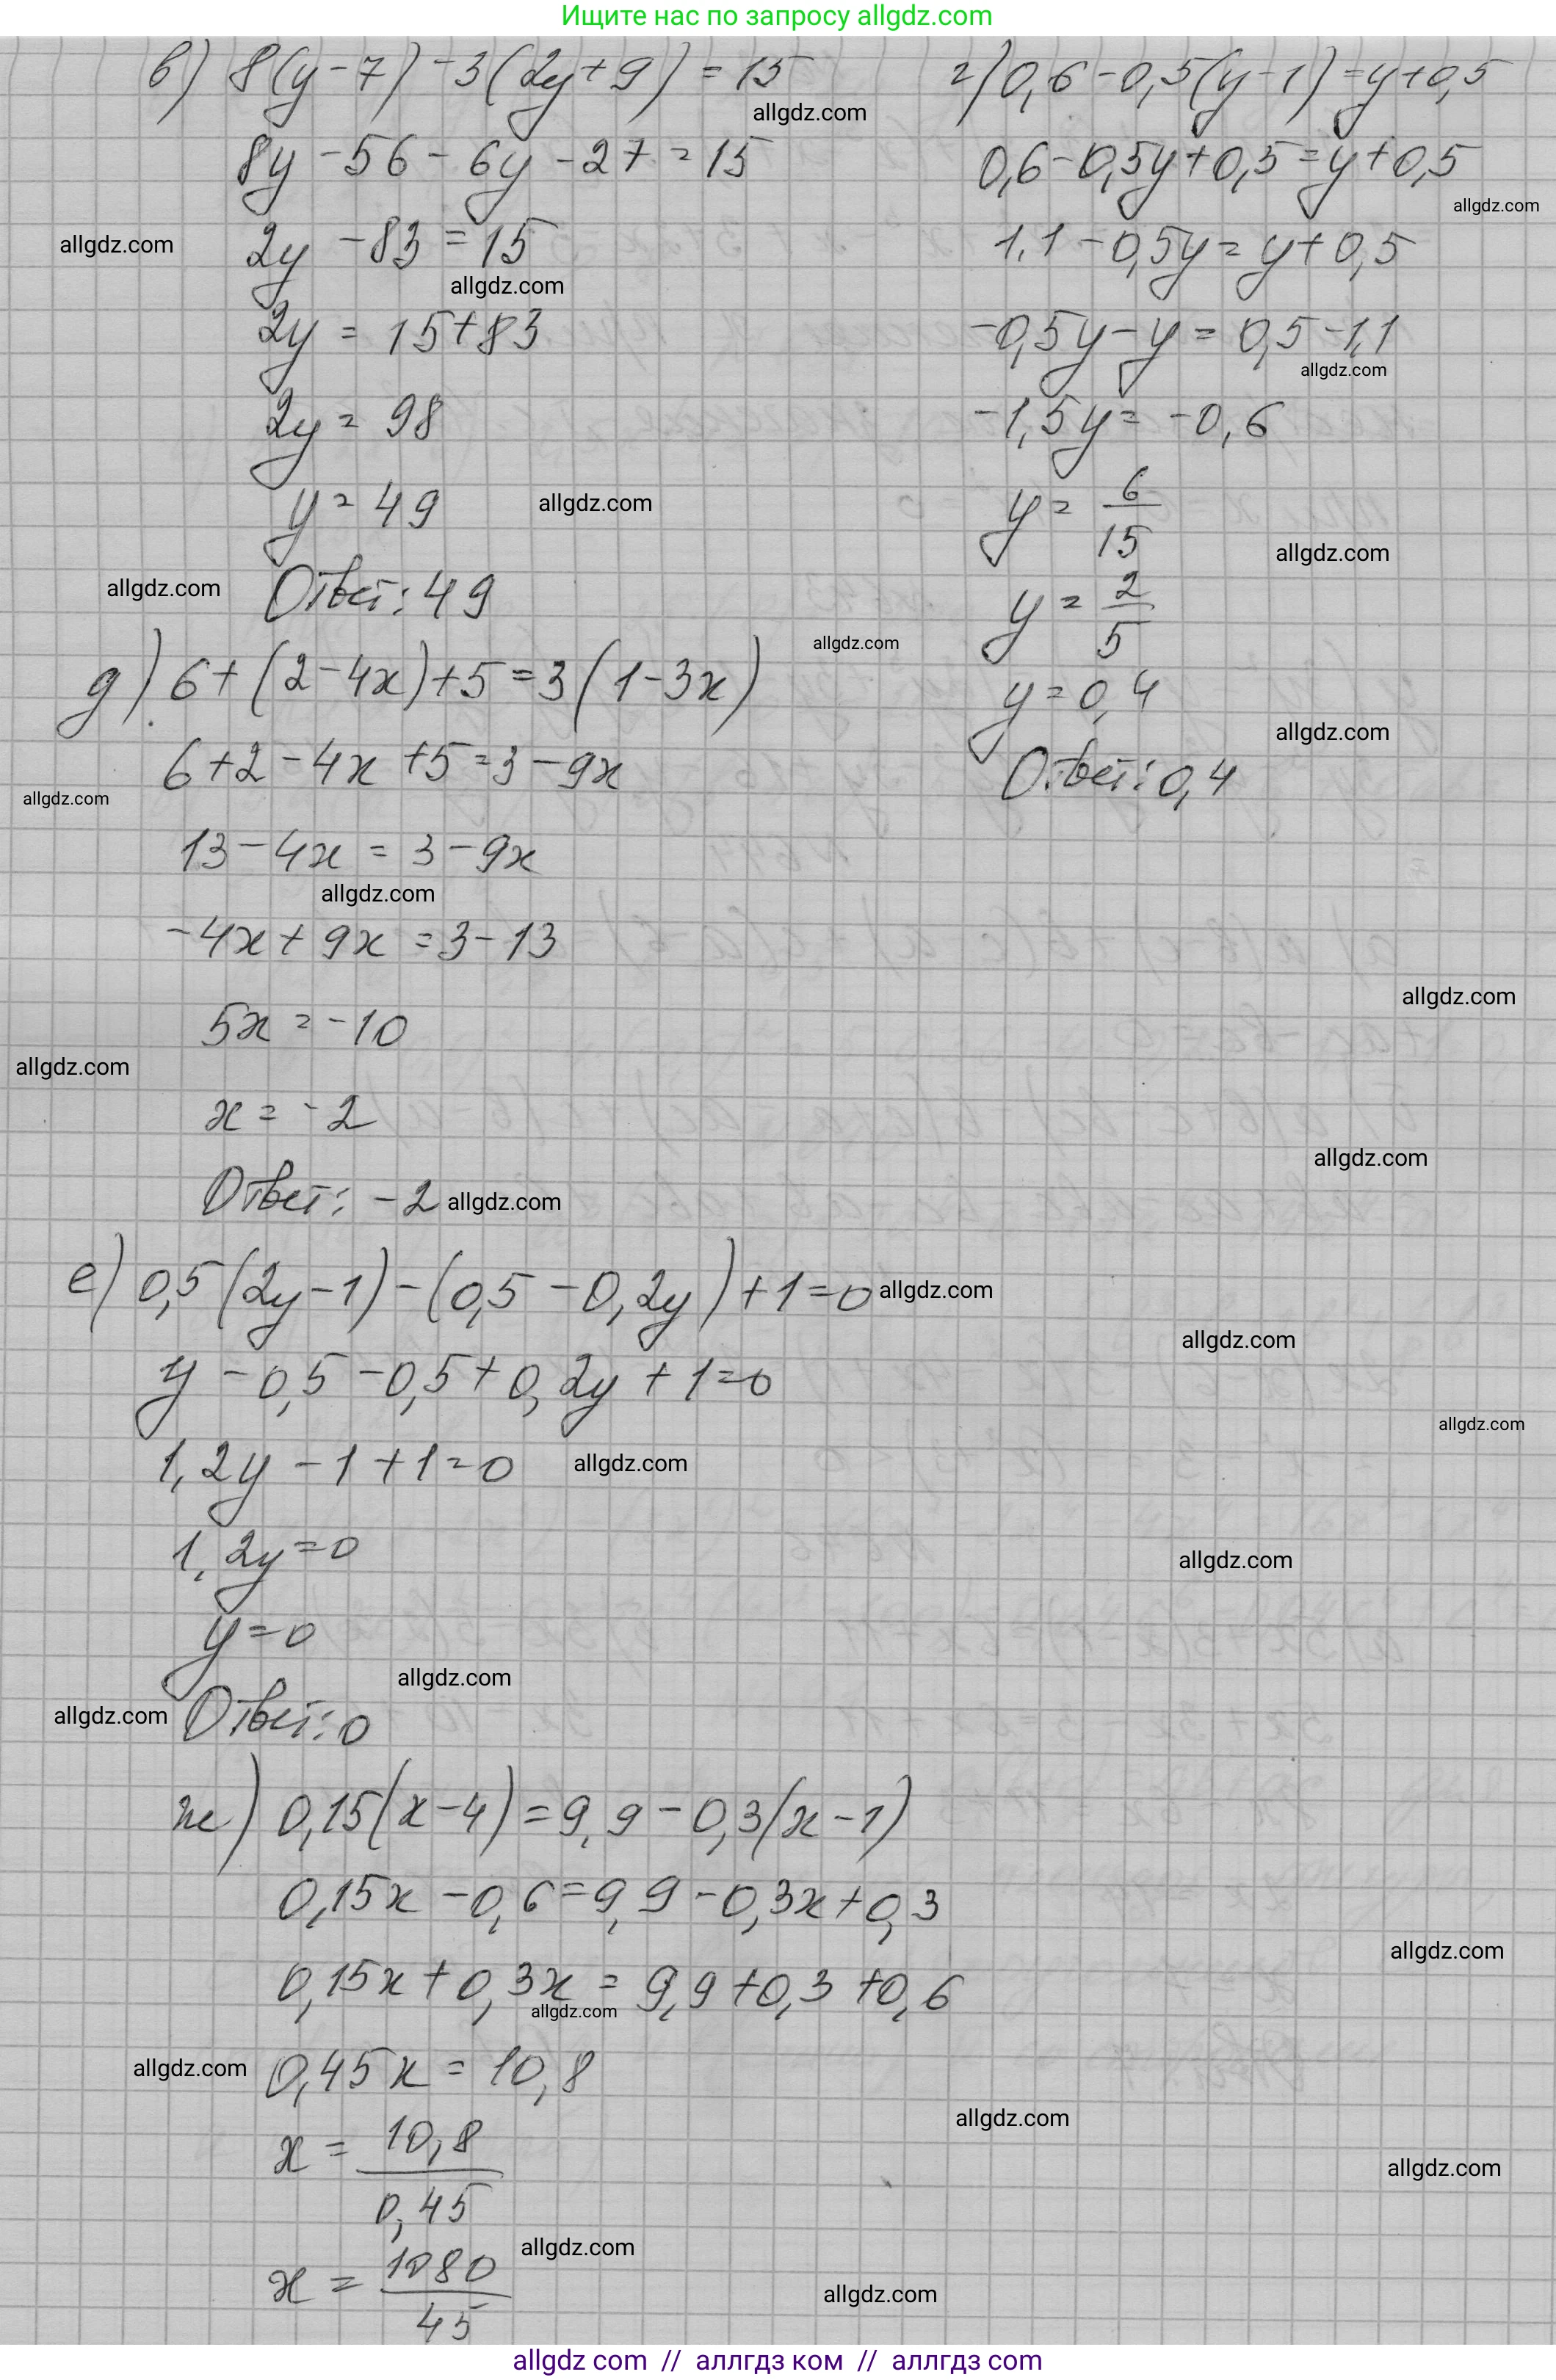 Ищите нас по запросу allgdz.com
в) 8(y-7)-3(2y+9)=15
allgdz.com
8y-56-6y-27=15
allgdz.com
2y-83=15
allgdz.com
2y=15+83
2y=98
y=49
allgdz.com
allgdz.com
Ответ: 49
г) 0,6-0,5(y-1)=y+0,5
0,6-0,5y+0,5=y+0,5
allgdz.com
1,1-0,5y=y+0,5
-0,5y-y=0,5-1,1
allgdz.com
-1,5y=-0,6
y=6/15
allgdz.com
y=2/5
allgdz.com
y=0,4
allgdz.com
Ответ: 0,4
д) 6+(2-4x)+5=3(1-3x)
6+2-4x+5=3-9x
allgdz.com
13-4x=3-9x
allgdz.com
-4x+9x=3-13
allgdz.com
5x=-10
allgdz.com
x=-2
allgdz.com
Ответ: -2 allgdz.com
е) 0,5(2y-1)-(0,5-0,2y)+1=0 allgdz.com
allgdz.com
y-0,5-0,5+0,2y+1=0
allgdz.com
1,2y-1+1=0 allgdz.com
1,2y=0
allgdz.com
y=0
allgdz.com
allgdz.com
Ответ: 0
ж) 0,15(x-4)=9,9-0,3(x-1)
0,15x-0,6=9,9-0,3x+0,3
allgdz.com
0,15x+0,3x=9,9+0,3+0,6
allgdz.com
allgdz.com
0,45x=10,8
allgdz.com
x=10,8/0,45
allgdz.com
allgdz.com
x=1080/45
allgdz.com
allgdz com // аллгдз ком // аллгдз com